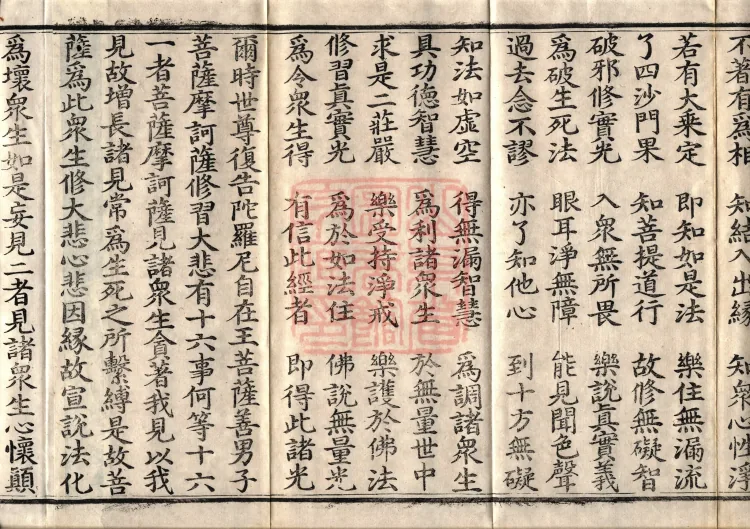 不著有爲相　知結入出緣　知衆心性淨
若有大乘定　即知如是法　樂住無漏流
了四沙門果　知菩提道行　故修無礙智
破邪修實光　入衆無所畏　樂說真實義
爲破生死法　眼耳淨無障　能見聞色聲
過去念不謬　亦了知他心　到十方無礙
知法如虛空　得無漏智慧　爲調諸衆生
具功德智慧　爲利諸衆生　於無量世中
求是二莊嚴　樂受持淨戒　樂護於佛法
修習真實光　爲於如法住　佛說無量光
爲令衆生得　有信此經者　即得此諸光
爾時世尊復告陀羅尼自在王菩薩善男子
菩薩摩訶薩修習大悲有十六事何等十六
一者菩薩摩訶薩見諸衆生貪著我見以我
見故增長諸見常爲生死之所繫縛是故菩
薩爲此衆生修大悲心悲因緣故宣說法化
爲壞衆生如是妄見二者見諸衆生心懷顛